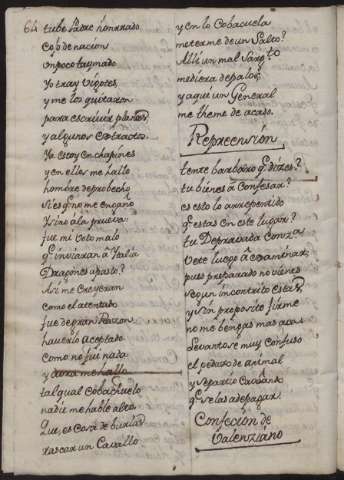 64
tube Padre honrrado
cojo de nacion
un poco taymado
Yo tray vigotes,
y me los quitaron
para escrivir planas
y algunos extractos.
Yo estoy en chapines
y en ellos me hallo
hombre de probecho
si es q.e no me engaño
Ysino a la prueva
fue mi celo malo
q.e inviaran a Ytalia
Dragones apasto?
Asi me creyeran
como el atentado
fue de gran Razon
haverlo aceptado
como no fue nada
y aora me hallo
tal qual cobachuelo
nadie me hable alto
Que, es cosa de burlas
rascar un Cavallo.
y en lo Cobacuela
meterme de un salto?
Alli un mal Sarg.to
mediera de palos,
y aqui un General
me theme de acaso.
Repreension
tente barbaro q.e dizes?
tu bienes a Confesar?
es esto lo arrepentido
q.e estas en este lugar?
tu Depravada Conz.a
Vete luego a examinar,
pues preparado no vienes
segun incontrito estas
y sin proposito firme
no me bengas mas aca.
Levantose muy confuso
el pedazo de animal
y separtio Cavilando
q.e se las a de pagar.
Confecion de
Valenziano